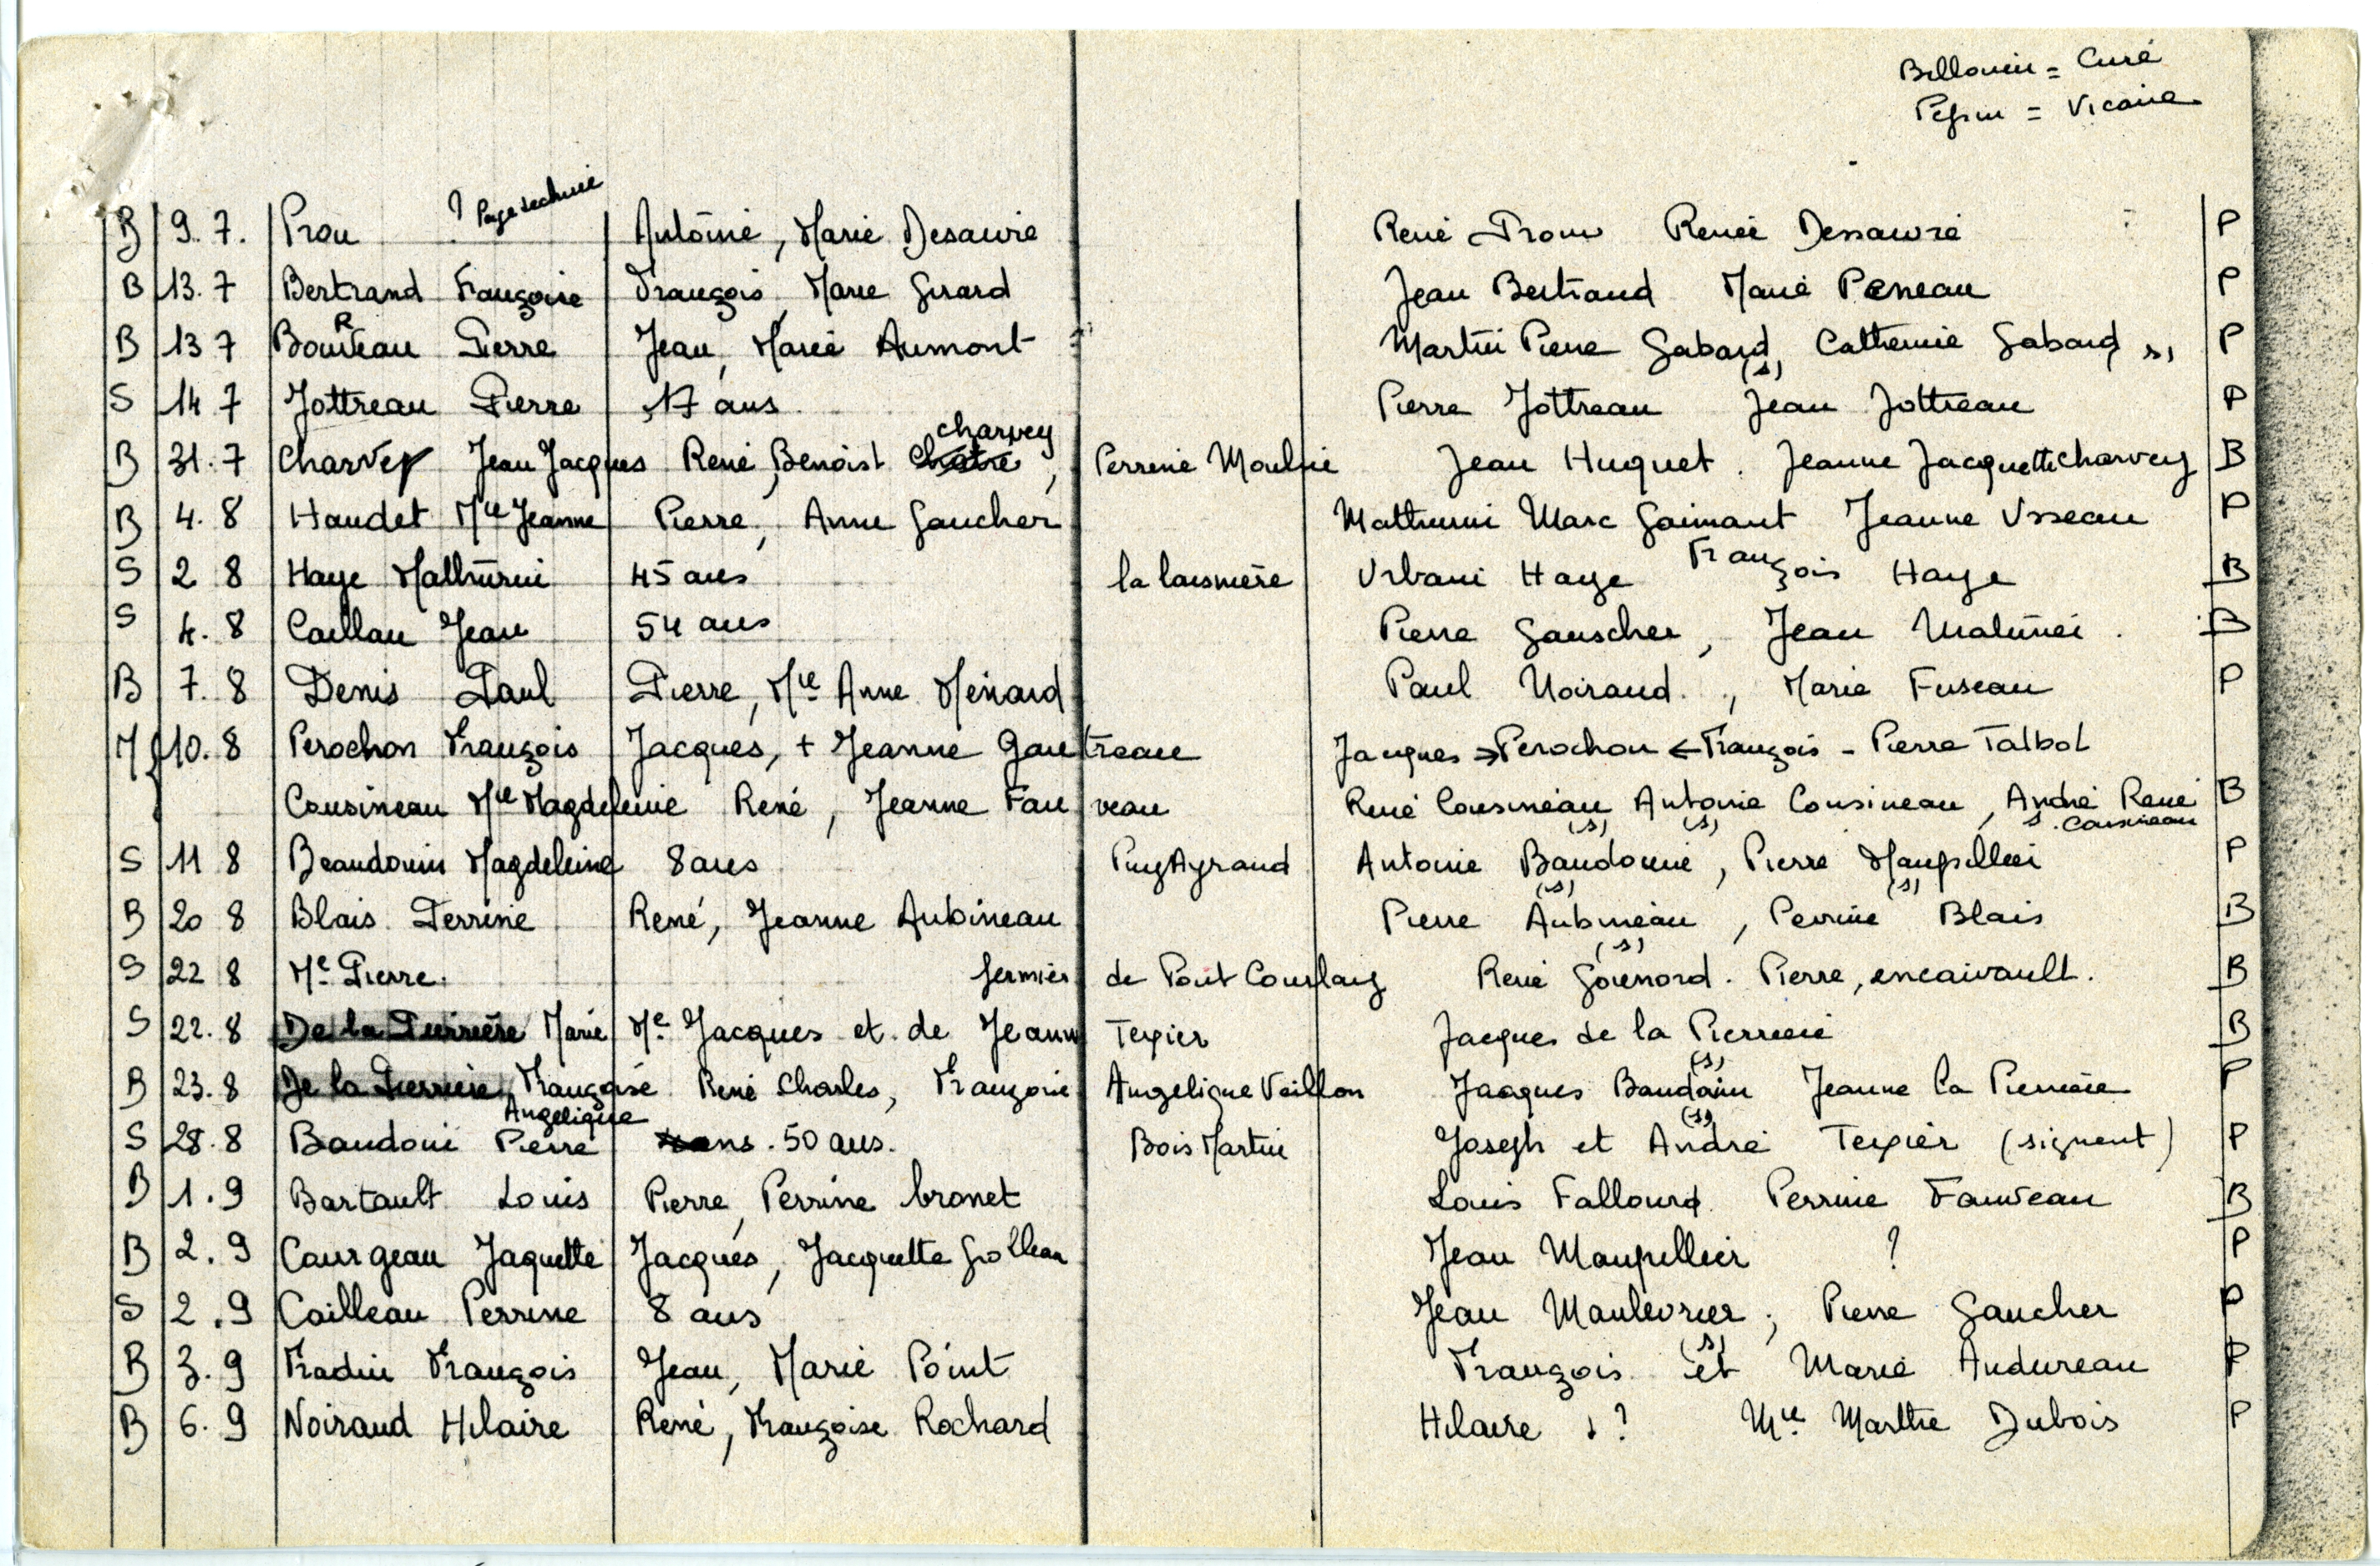 Billouin = Curé
Pepin = Vicaire
? Page déchirée
B 9. 7. Prou Antoine, Marie Desaivre René Prou Renée Dessaivre P
B 13. 7 Bertrand Françoise François, Marie Girard Jean Bertrand Marie Peneau P
R
B 13 7 Bouteau Pierre Jean, Marie Aumont Martin Pierre Gabard, Catherine Gabard, s, P
(s)
S 14 7 Jottreau Pierre 17 ans Pierre Jottreau Jean Jottreau P
charvey
B 31. 7 Charvey Jean Jacques René, Benoist Chatre, Perrine Moulnie Jean Huquet. Jeanne Jacquette charvey B
B 4. 8 Haudet Mie Jeanne Pierre, Anne Gaucher Mathurin Marc Gaimant Jeanne Usseau P
S 2 8 Haye Mathurin 45 ans la laismière Urbain Haye François Haye B
S 4. 8 Caillau Jean 54 ans Pierre Gauscher, Jean B
B 7. 8 Denis Paul Pierre, Mie Anne Menard Paul Noiraud, Marie Fuseau P
M 10. 8 Perochon François Jacques, + Jeanne Gautreau Jacques → Perochon ← François - Pierre Talbot
Cousineau Mie Magdeleine René, Jeanne Fauveau René Cousineau Antoine Cousineau, André René B
(s) (s) s. Cousineau
S 11 8 Beaudouin Magdeleine 8 ans PuyAyraud Antoine Baudouin, Pierre Maupillier P
(s) (s)
B 20 8 Blais Perrine René, Jeanne Aubineau Pierre Aubineau, Perrine Blais B
(s)
S 22 8 Me Pierre. fermier de Pont Courlay René Gouenord. Pierre, encaivault. B
S 22. 8 De la Perrière Marie Me Jacques et de Jeanne Texier Jacques de la Pierrerie B
(s)
B 23. 8 De la Pierrerie, Françoise René Charles, Françoise Angelique Veillon Jacques Baudouin Jeanne la Pierrerie P
Angelique (s)
S 28. 8 Baudoin Pierre 50 ans. Bois Martin Joseph et André Texier (signent) P
B 1. 9 Bartault Louis Pierre, Perrine bronet Louis Fallourd Perrine Fauveau B
B 2. 9 Caurgeau Jaquette Jacques, Jacquette Grolleau Jean Maupillier ? P
S 2. 9 Cailleau Perrine 8 ans Jean Maulevrier, Pierre Gaucher P
(s)
B 3. 9 Fradin François Jean, Marie Point François et Marie Audureau P
B 6. 9 Noiraud Hilaire René, Françoise Rochard Hilaire s ? Mie Marthe Dubois P